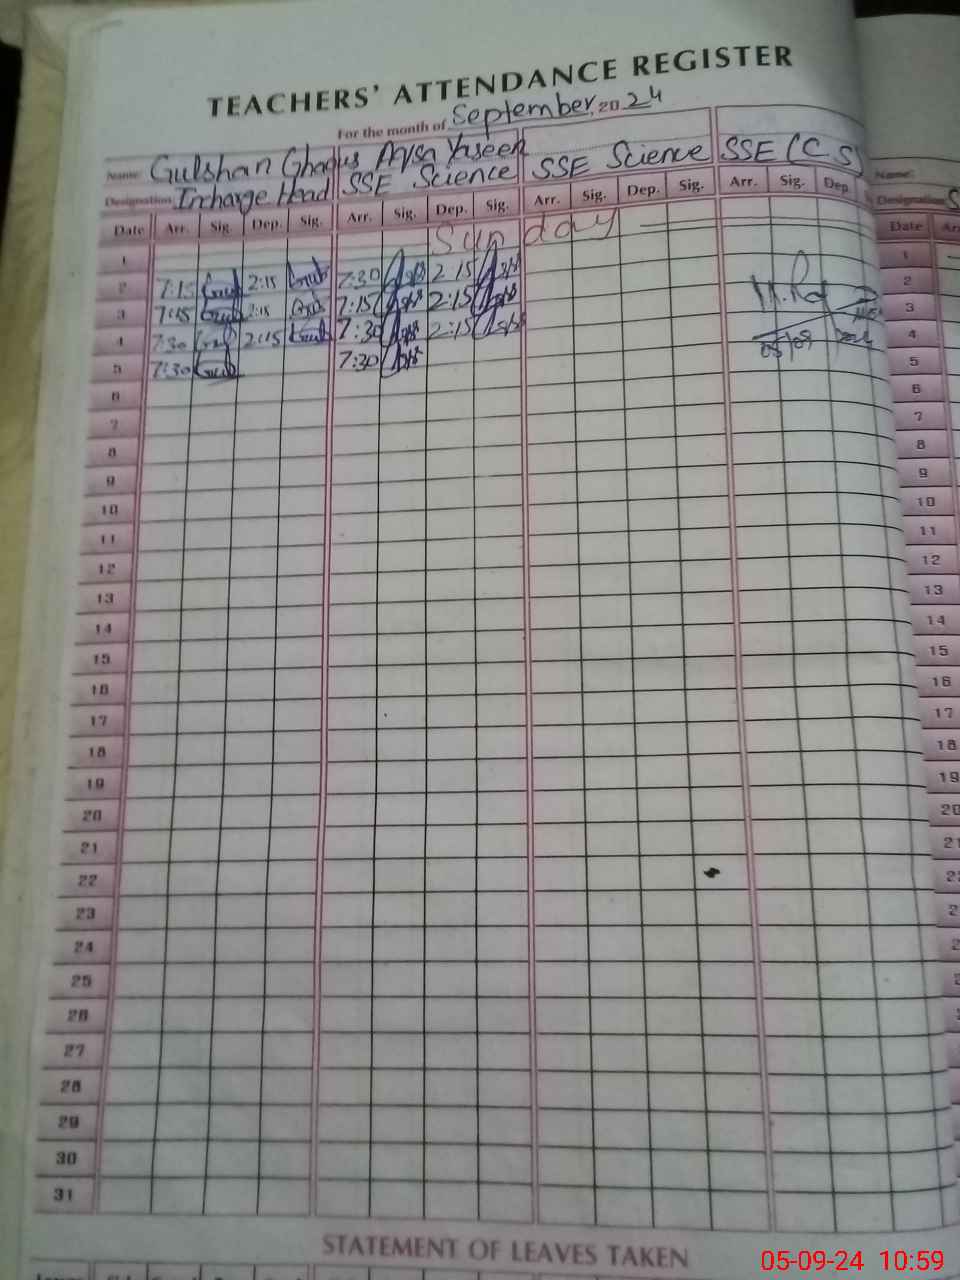 TEACHERS' ATTENDANCE REGISTER
For the month of September, 2024
Name: Gulshan Ghaous Aysa Yaseen
Designation Incharge Head SSE Science SSE Science SSE (CS)
Name:
Designation S
Date Arr. Sig. Dep. Sig. Arr. Sig. Dep. Sig. Arr. Sig. Dep. Sig. Arr. Sig. Dep.
Date Arr
1 Sunday 1
2 7:15 Gul 2:15 Gul 7:30 2:15 2
3 7:15 Gul 2:15 Gul 7:15 2:15 3
4 7:30 Gul 2:15 Gul 7:30 2:15 05/09/2024 4
5 7:30 Gul 7:30 5
6 6
7 7
8 8
9 9
10 10
11 11
12 12
13 13
14 14
15 15
16 16
17 17
18 18
19 19
20 20
21 21
22
23
24
25
26
27
28
29
30
31
STATEMENT OF LEAVES TAKEN
05-09-24 10:59